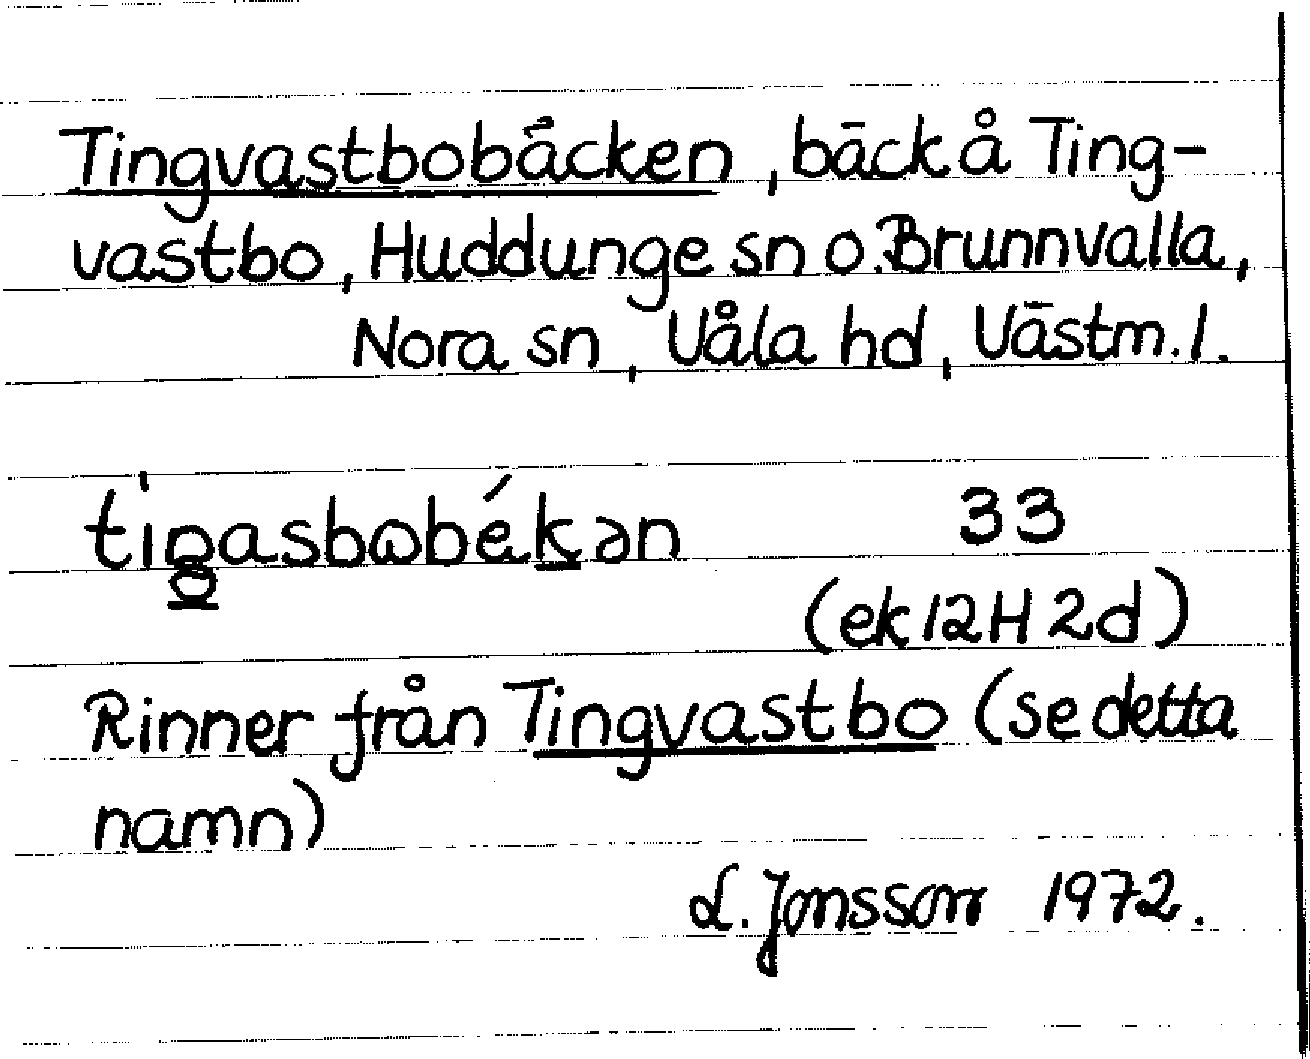 Tingvastbobäcken, bäck å Ting-
vastbo, Huddunge sn o. Brunnvalla,
Nora sn, Våla hd, Västm. l.
33
(ek 12H 2d)
Rinner från Tingvastbo (se detta
namn)
L. Jonsson 1972.